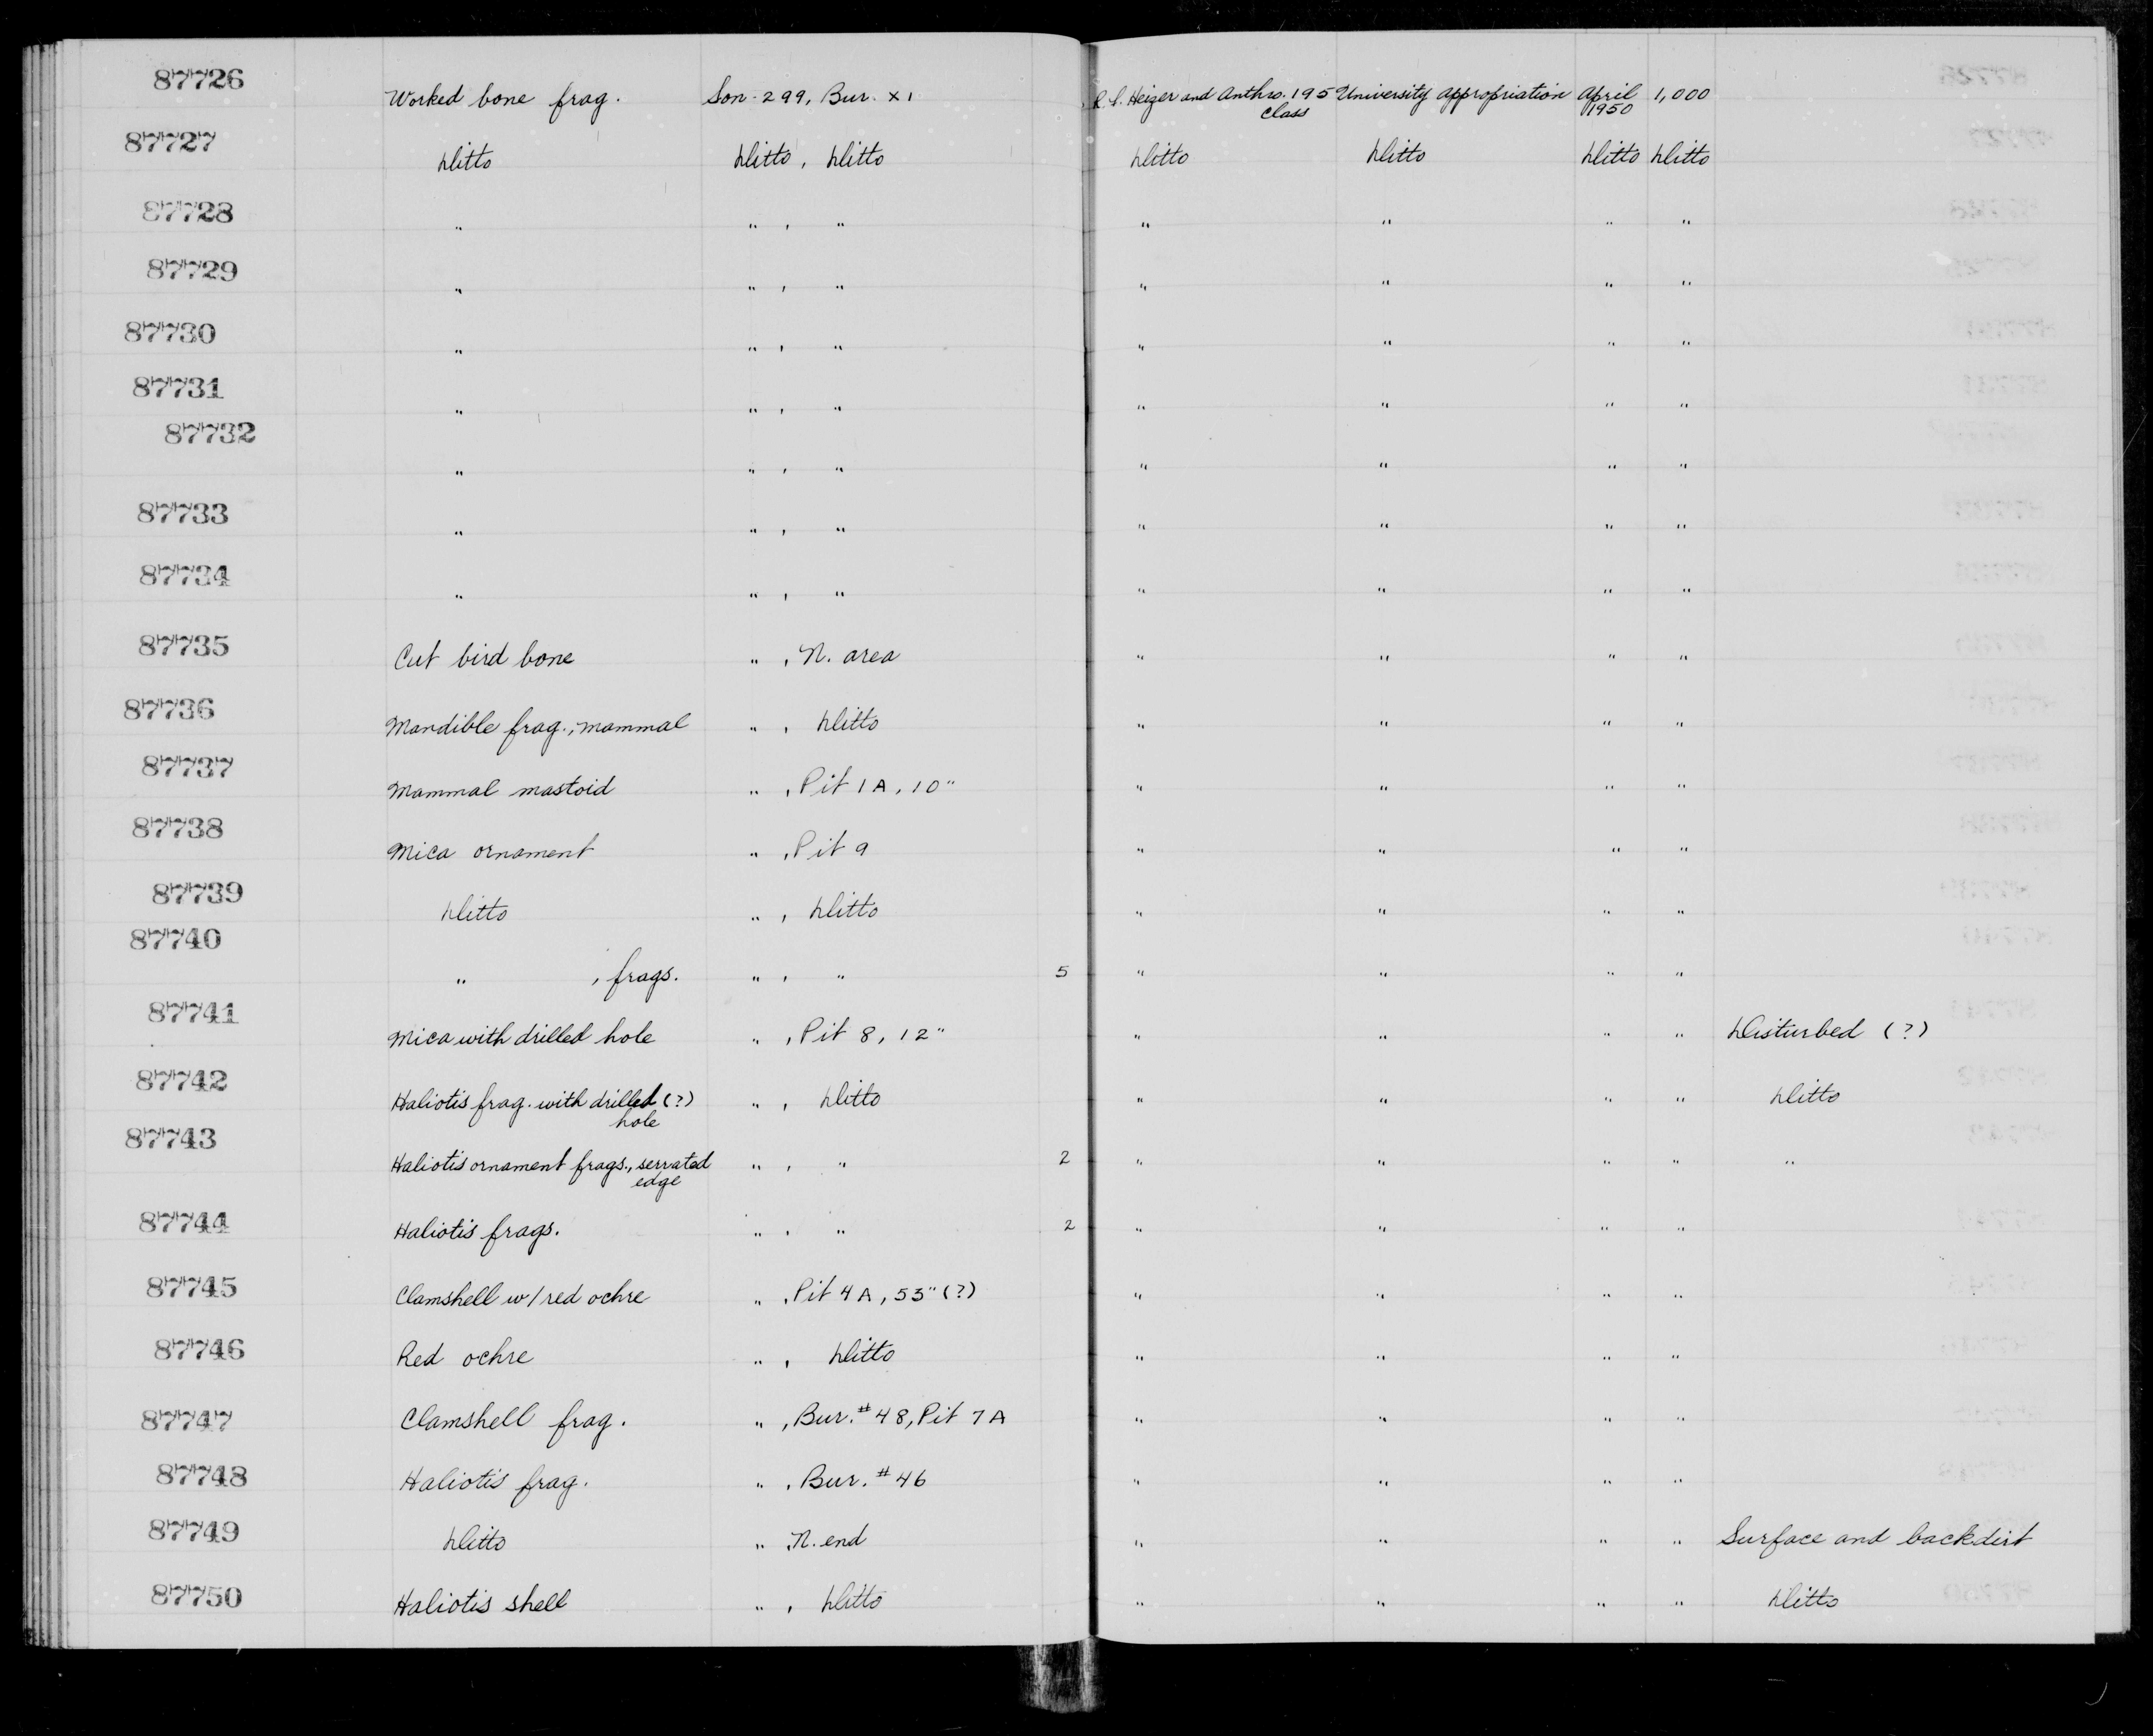 87726 Worked bone frag. Son-299, Bur. XI R. F. Heizer and Anthro. 195 class University appropriation April 1950 1,000
87727 Ditto Ditto, Ditto Ditto Ditto Ditto Ditto
87728 " " , " " " " "
87729 " " , " " " " "
87730 " " , " " " " "
87731 " " , " " " " "
87732 " " , " " " " "
87733 " " , " " " " "
87734 " " , " " " " "
87735 Cut bird bone " , N. area " " " "
87736 Mandible frag., mammal " , Ditto " " " "
87737 Mammal mastoid " , Pit 1A, 10" " " " "
87738 Mica ornament " , Pit 9 " " " "
87739 Ditto " , Ditto " " " "
87740 " , frags. " , " 5 " " " "
87741 Mica with drilled hole " , Pit 8, 12" " " " " Disturbed (?)
87742 Haliotis frag. with drilled (?) hole " , Ditto " " " " Ditto
87743 Haliotis ornament frags., serrated edge " , " 2 " " " " "
87744 Haliotis frags. " , " 2 " " " "
87745 Clamshell w/ red ochre " , Pit 4A, 53" (?) " " " "
87746 Red ochre " , Ditto " " " "
87747 Clamshell frag. " , Bur. #48, Pit 7A " " " "
87748 Haliotis frag. " , Bur. #46 " " " "
87749 Ditto " , N. end " " " " Surface and backdirt
87750 Haliotis shell " , Ditto " " " " Ditto